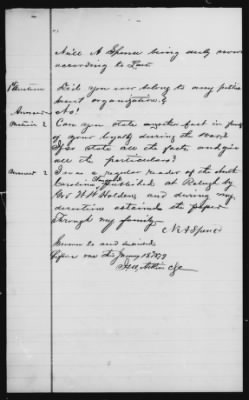 Neill A Spence being duly sworn
according to Law
Question Did you ever belong to any
ment organization?
Answer No!
Question 2 Can you state another fact in proof
of your loyalty during the war?
If so state all the facts and give
all the particulars?
Answer 2 I was a regular reader of the North
Carolina Standard published at Raleigh by
Gov W W Holden and during my
the paper
through my family.
N A Spence
Sworn to and
before me this 1879